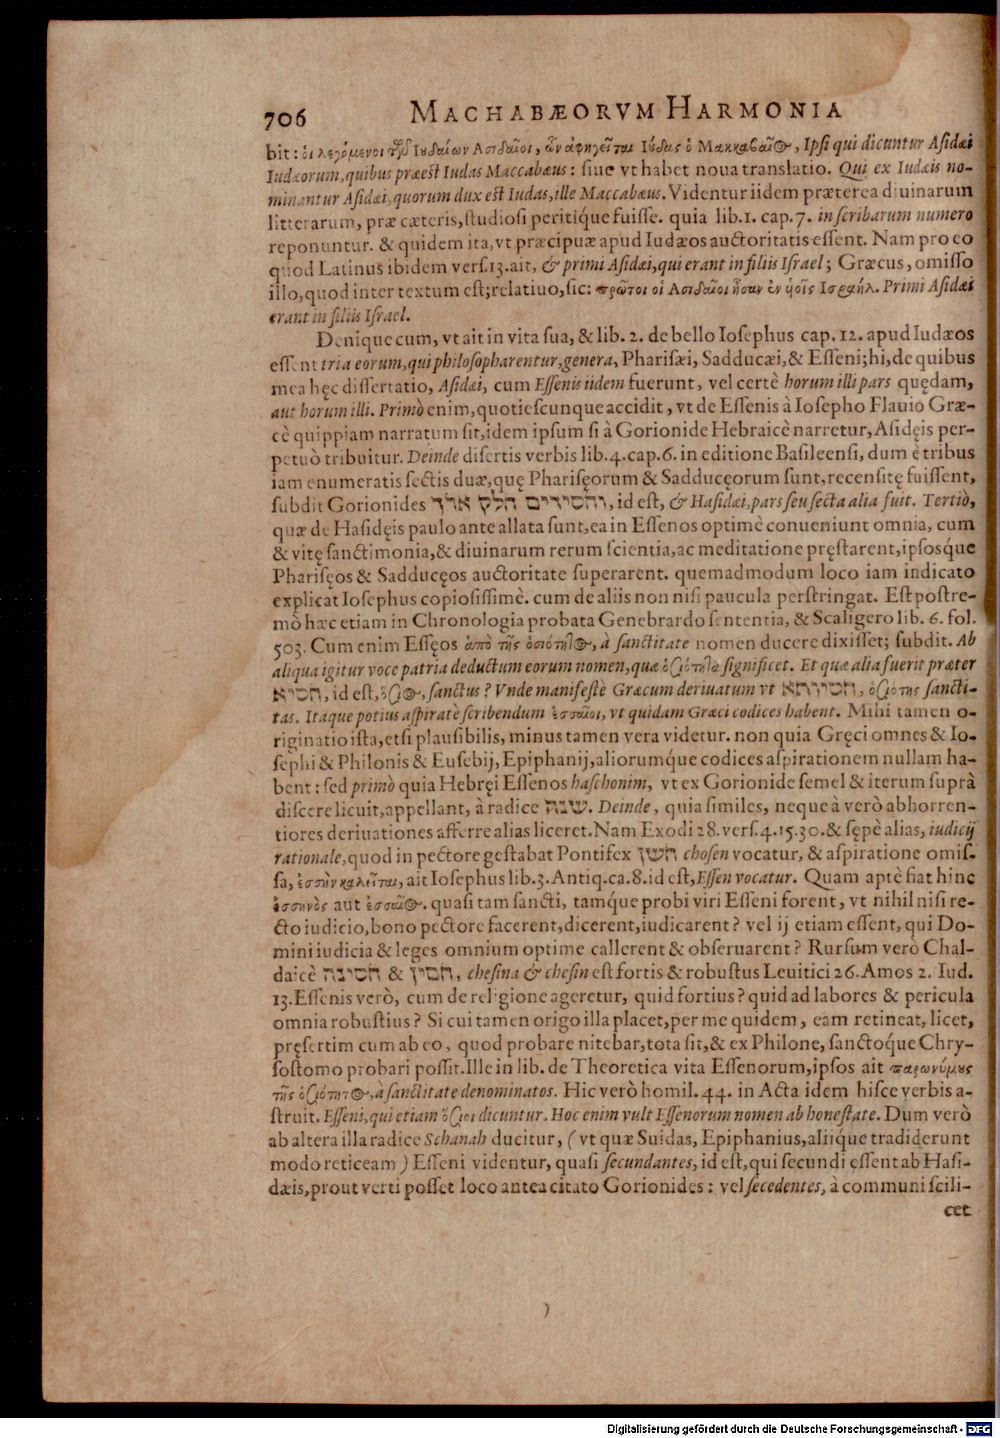 706 MACHABÆORVM HARMONIA
bit: ὁι λεγόμενοι τῶν Ιυδαίων Ασιδαῖοι, ὧν ἀφηγεῖται Ιύδας ὁ Μακκαβαῖος, Ipsi qui dicuntur Asidæi
Iudæorum, quibus præest Iudas Maccabæus: siue vt habet noua translatio. Qui ex Iudæis no-
minantur Asidæi, quorum dux est Iudas, ille Maccabæus. Videntur iidem præterea diuinarum
litterarum, præ cæteris, studiosi peritíque fuisse. quia lib.1. cap.7. in scribarum numero
reponuntur. & quidem ita, vt præcipuæ apud Iudæos auctoritatis essent. Nam pro eo
quod Latinus ibidem vers.13.ait, & primi Asidæi, qui erant in filiis Israel; Græcus, omisso
illo, quod inter textum est; relatiuo, sic: πρῶτοι οἱ Ασιδαῖοι ἦσαν ἐν ὑοῖς Ισραήλ. Primi Asidæi
erant in filiis Israel.
Denique cum, vt ait in vita sua, & lib. 2. de bello Iosephus cap. 12. apud Iudæos
essent tria eorum, qui philosopharentur, genera, Pharisæi, Sadducæi, & Esseni; hi, de quibus
mea hęc dissertatio, Asidæi, cum Essenis iidem fuerunt, vel certè horum illi pars quędam,
aut horum illi. Primò enim, quotiescunque accidit, vt de Essenis à Iosepho Flauio Græ-
cè quippiam narratum sit, idem ipsum si à Gorionide Hebraicè narretur, Asidęis per-
petuò tribuitur. Deinde disertis verbis lib.4.cap.6. in editione Basileensi, dum è tribus
iam enumeratis sectis duæ, quę Pharisęorum & Sadducęorum sunt, recensitę fuissent,
subdit Gorionides והסידים חלק אחד, id est, & Hasidæi, pars seu secta alia fuit. Tertiò,
quæ de Hasidęis paulo ante allata sunt, ea in Essenos optimè conueniunt omnia, cum
& vitę sanctimonia, & diuinarum rerum scientia, ac meditatione pręstarent, ipsosq́ue
Pharisęos & Sadducęos auctoritate superarent. quemadmodum loco iam indicato
explicat Iosephus copiosissimè. cum de aliis non nisi paucula perstringat. Est postre-
mò hæc etiam in Chronologia probata Genebrardo sententia, & Scaligero lib. 6. fol.
503. Cum enim Essęos ἀπὸ τῆς ὁσιότητος, à sanctitate nomen ducere dixisset; subdit. Ab
aliqua igitur voce patria deductum eorum nomen, quæ ὁσιότητα significet. Et quæ alia fuerit præter
חסיא, id est, ὅσιος, sanctus? Vnde manifestè Græcum deriuatum vt חסיותא, ὁσιότης sancti-
tas. Itaque potius aspiratè scribendum ἑσσαῖοι, vt quidam Græci codices habent. Mihi tamen o-
riginatio ista, etsi plausibilis, minus tamen vera videtur. non quia Gręci omnes & Io-
sephi & Philonis & Eusebij, Epiphanij, aliorumq́ue codices aspirationem nullam ha-
bent: sed primò quia Hebręi Essenos haschonim, vt ex Gorionide semel & iterum suprà
discere licuit, appellant, à radice שנה. Deinde, quia similes, neque à verò abhorren-
tiores deriuationes afferre alias liceret. Nam Exodi 28. vers.4.15.30.& sępè alias, iudicij
rationale, quod in pectore gestabat Pontifex חשן chosen vocatur, & aspiratione omis-
sa, ἐσσὴν καλεῖται, ait Iosephus lib.3.Antiq.ca.8.id est, Essen vocatur. Quam aptè fiat hinc
ἐσσηνὸς aut ἐσσαῖος. quasi tam sancti, tamq́ue probi viri Esseni forent, vt nihil nisi re-
cto iudicio, bono pectore facerent, dicerent, iudicarent? vel ij etiam essent, qui Do-
mini iudicia & leges omnium optime callerent & obseruarent? Rursum verò Chal-
daicè חסינה & חסין, chesina & chesin est fortis & robustus Leuitici 26. Amos 2. Iud.
13. Essenis verò, cum de religione ageretur, quid fortius? quid ad labores & pericula
omnia robustius? Si cui tamen origo illa placet, per me quidem, eam retineat, licet,
pręsertim cum ab eo, quod probare nitebar, tota sit, & ex Philone, sanctóque Chry-
sostomo probari possit. Ille in lib. de Theoretica vita Essenorum, ipsos ait παρωνύμους
τῆς ὁσιότητος, à sanctitate denominatos. Hic verò homil. 44. in Acta idem hisce verbis a-
struit. Esseni, qui etiam ὅσιοι dicuntur. Hoc enim vult Essenorum nomen ab honestate. Dum verò
ab altera illa radice Schanah ducitur, (vt quæ Suidas, Epiphanius, aliíque tradiderunt
modo reticeam) Esseni videntur, quasi secundantes, id est, qui secundi essent ab Hasi-
dæis, prout verti posset loco antea citato Gorionides: vel secedentes, à communi scili-
cet
Digitalisierung gefördert durch die Deutsche Forschungsgemeinschaft - DFG